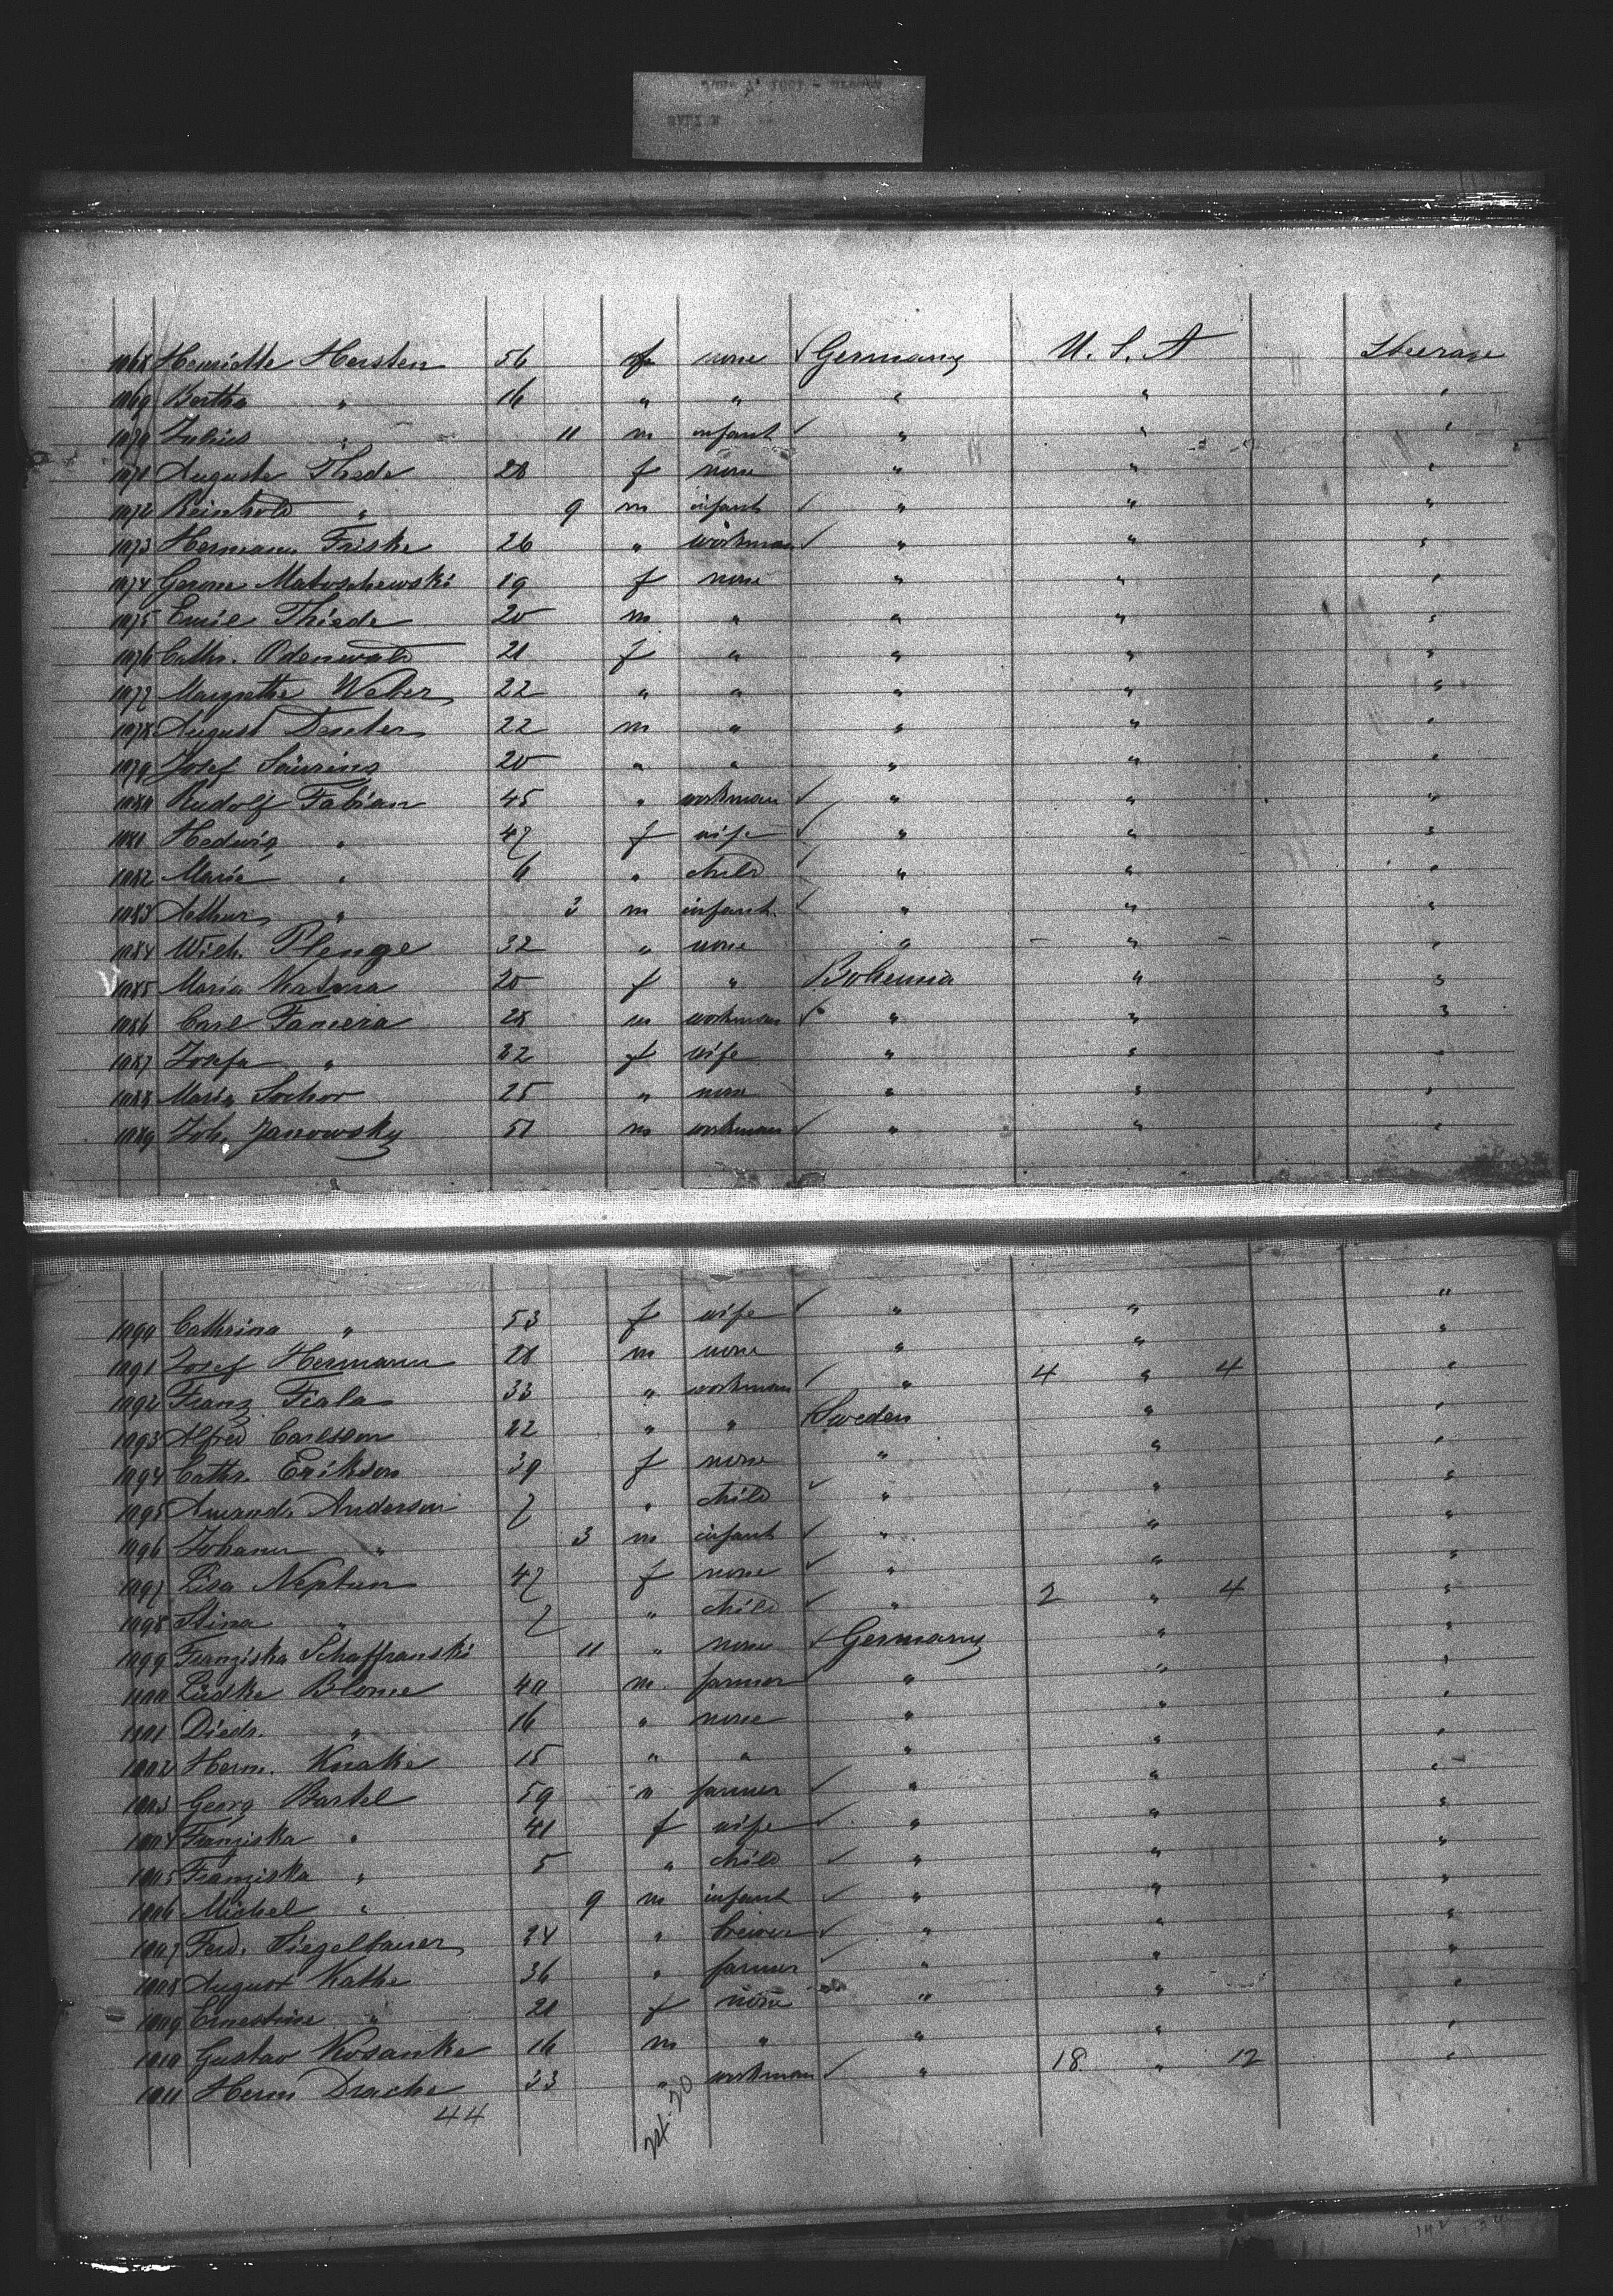 1068 Henriette Hersten 56 f none ✓ Germany U. S. A Steerage
1069 Bertha " 16 " " " " "
1070 Julius " 11 m infant ✓ " " "
1071 Auguste Thede 28 f none " " "
1072 Reinhold " 9 m infant ✓ " " "
1073 Hermann Friske 26 " workman ✓ " " "
1074 Matoschewski 19 f none " " "
1075 Emil Thiede 20 m " " " "
1076 Cathr. Odenwald 21 f " " " "
1077 Margrethe Weber 22 " " " " "
1078 August 22 m " " " "
1079 Josef 20 " " " " "
1080 Rudolf Fabian 45 " workman ✓ " " "
1081 Hedwig " 47 f wife ✓ " " "
1082 Maria " 6 " child ✓ " " "
1083 Arthur " 3 m infant ✓ " " "
1084 Wilh. Plenge 32 " none " " "
1085 Maria Katona 20 f " Bohemia " "
1086 Carl Famera 28 m workman ✓ " " "
1087 Josefa " 22 f wife " " "
1088 Maria Sochor 25 " none " " "
1089 Joh. Janowsky 51 m workman ✓ " " "
1090 Cathrina " 53 f wife ✓ " " "
1091 Josef Hermann 28 m none " " "
1092 Franz Fiala 33 " workman ✓ " 4 " 4 "
1093 Alfred Carlsson 22 " " Sweden " "
1094 Cathr. Erikson 39 f none " " "
1095 Amanda Anderson 7 " child ✓ " " "
1096 Johann " 3 m infant ✓ " " "
1097 Lisa Neptun 47 f none ✓ " " "
1098 Stina " 7 " child ✓ " 2 " 4 "
1099 Franziska Schaffranski 11 " none ✓ Germany " "
1100 Lüdke Blome 40 m farmer ✓ " " "
1101 Diedr. " 16 " none " " "
1102 Herm. Knake 15 " " " " "
1103 Georg Bartel 59 " farmer ✓ " " "
1104 Franziska " 41 f wife ✓ " " "
1105 Franziska " 5 " child ✓ " " "
1106 Michel " 9 m infant ✓ " " "
1107 Ferd. Siegelbauer 24 " brewer ✓ " " "
1108 August Kathe 36 " farmer ✓ " " "
1109 Ernestine " 21 f none " " "
1010 Gustav Kosanke 16 m " " " "
1011 Herm Drache 33 " workman ✓ " 18 " 12 "
44